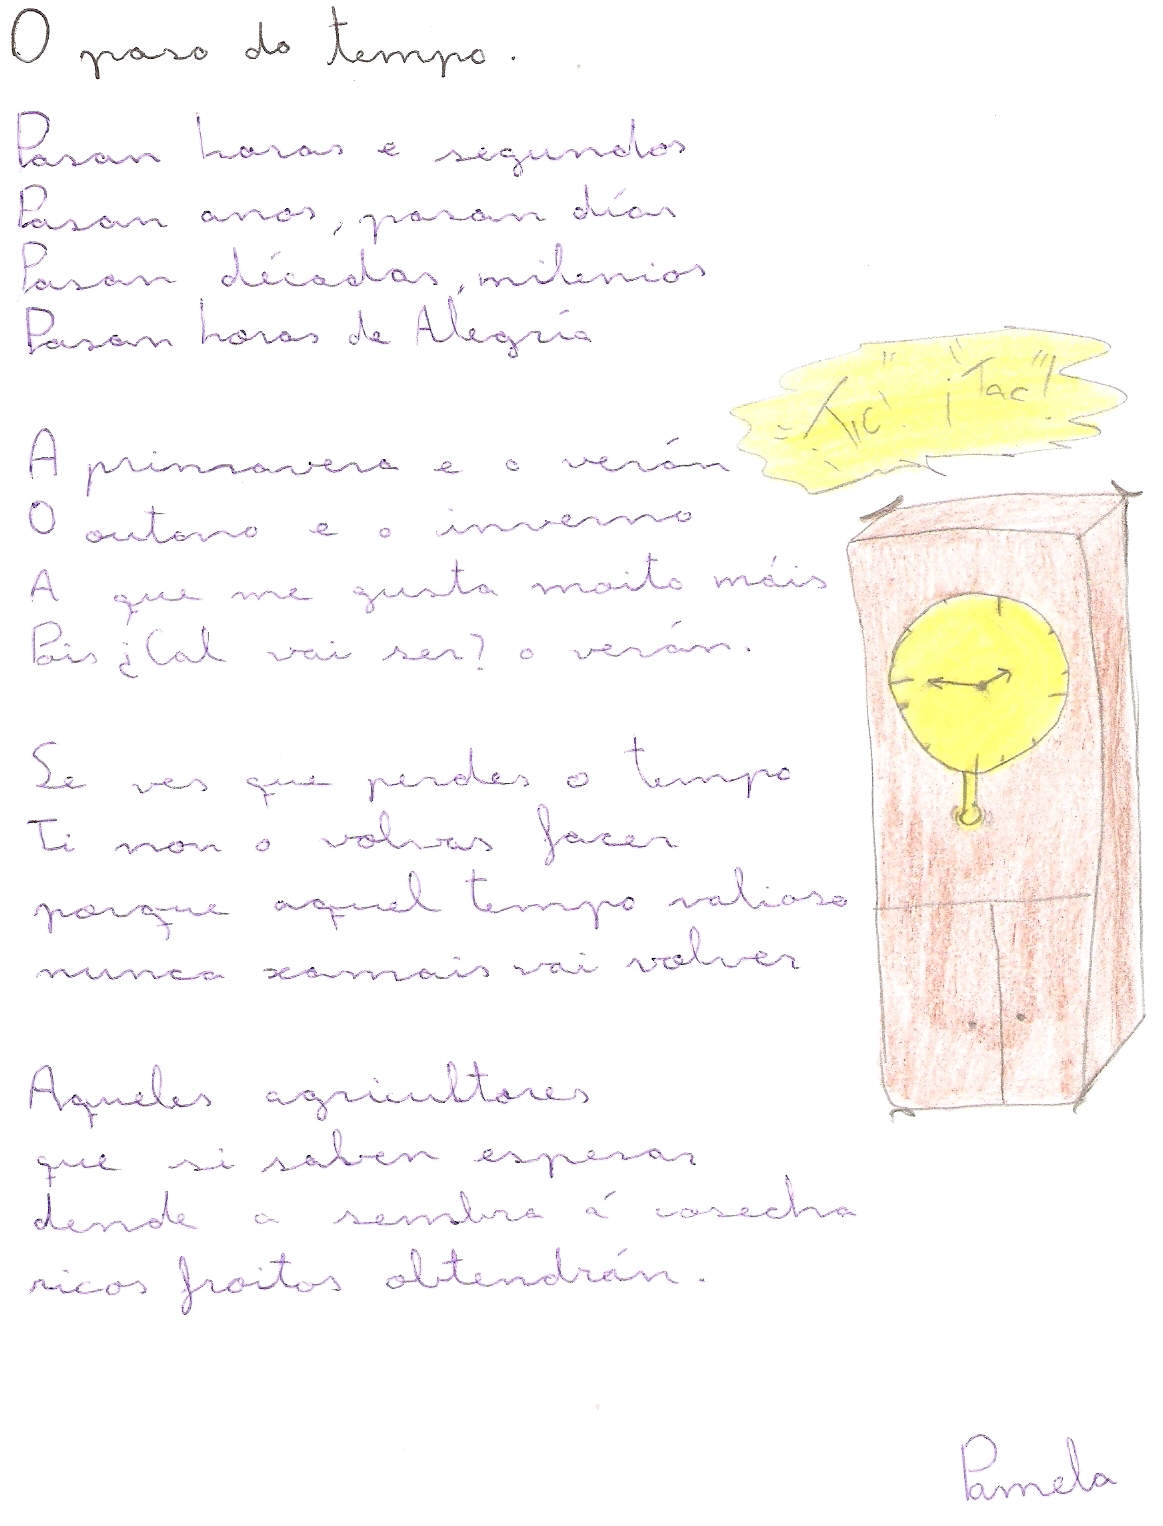 O paso do tempo.
Pasan horas e segundos
Pasan anos, pasan días
Pasan décadas, milenios
Pasan horas de Alegría
¡Tic! ¡Tac!
A primavera e o verán
O outono e o inverno
A que me gusta moito máis
Pois ¿Cal vai ser? o verán.
Se ves que perdes o tempo
Ti non o volvas facer
porque aquel tempo valioso
nunca xamais vai volver
Aqueles agricultores
que si saben esperar
dende a sembra á cosecha
ricos froitos obtendrán.
Pamela